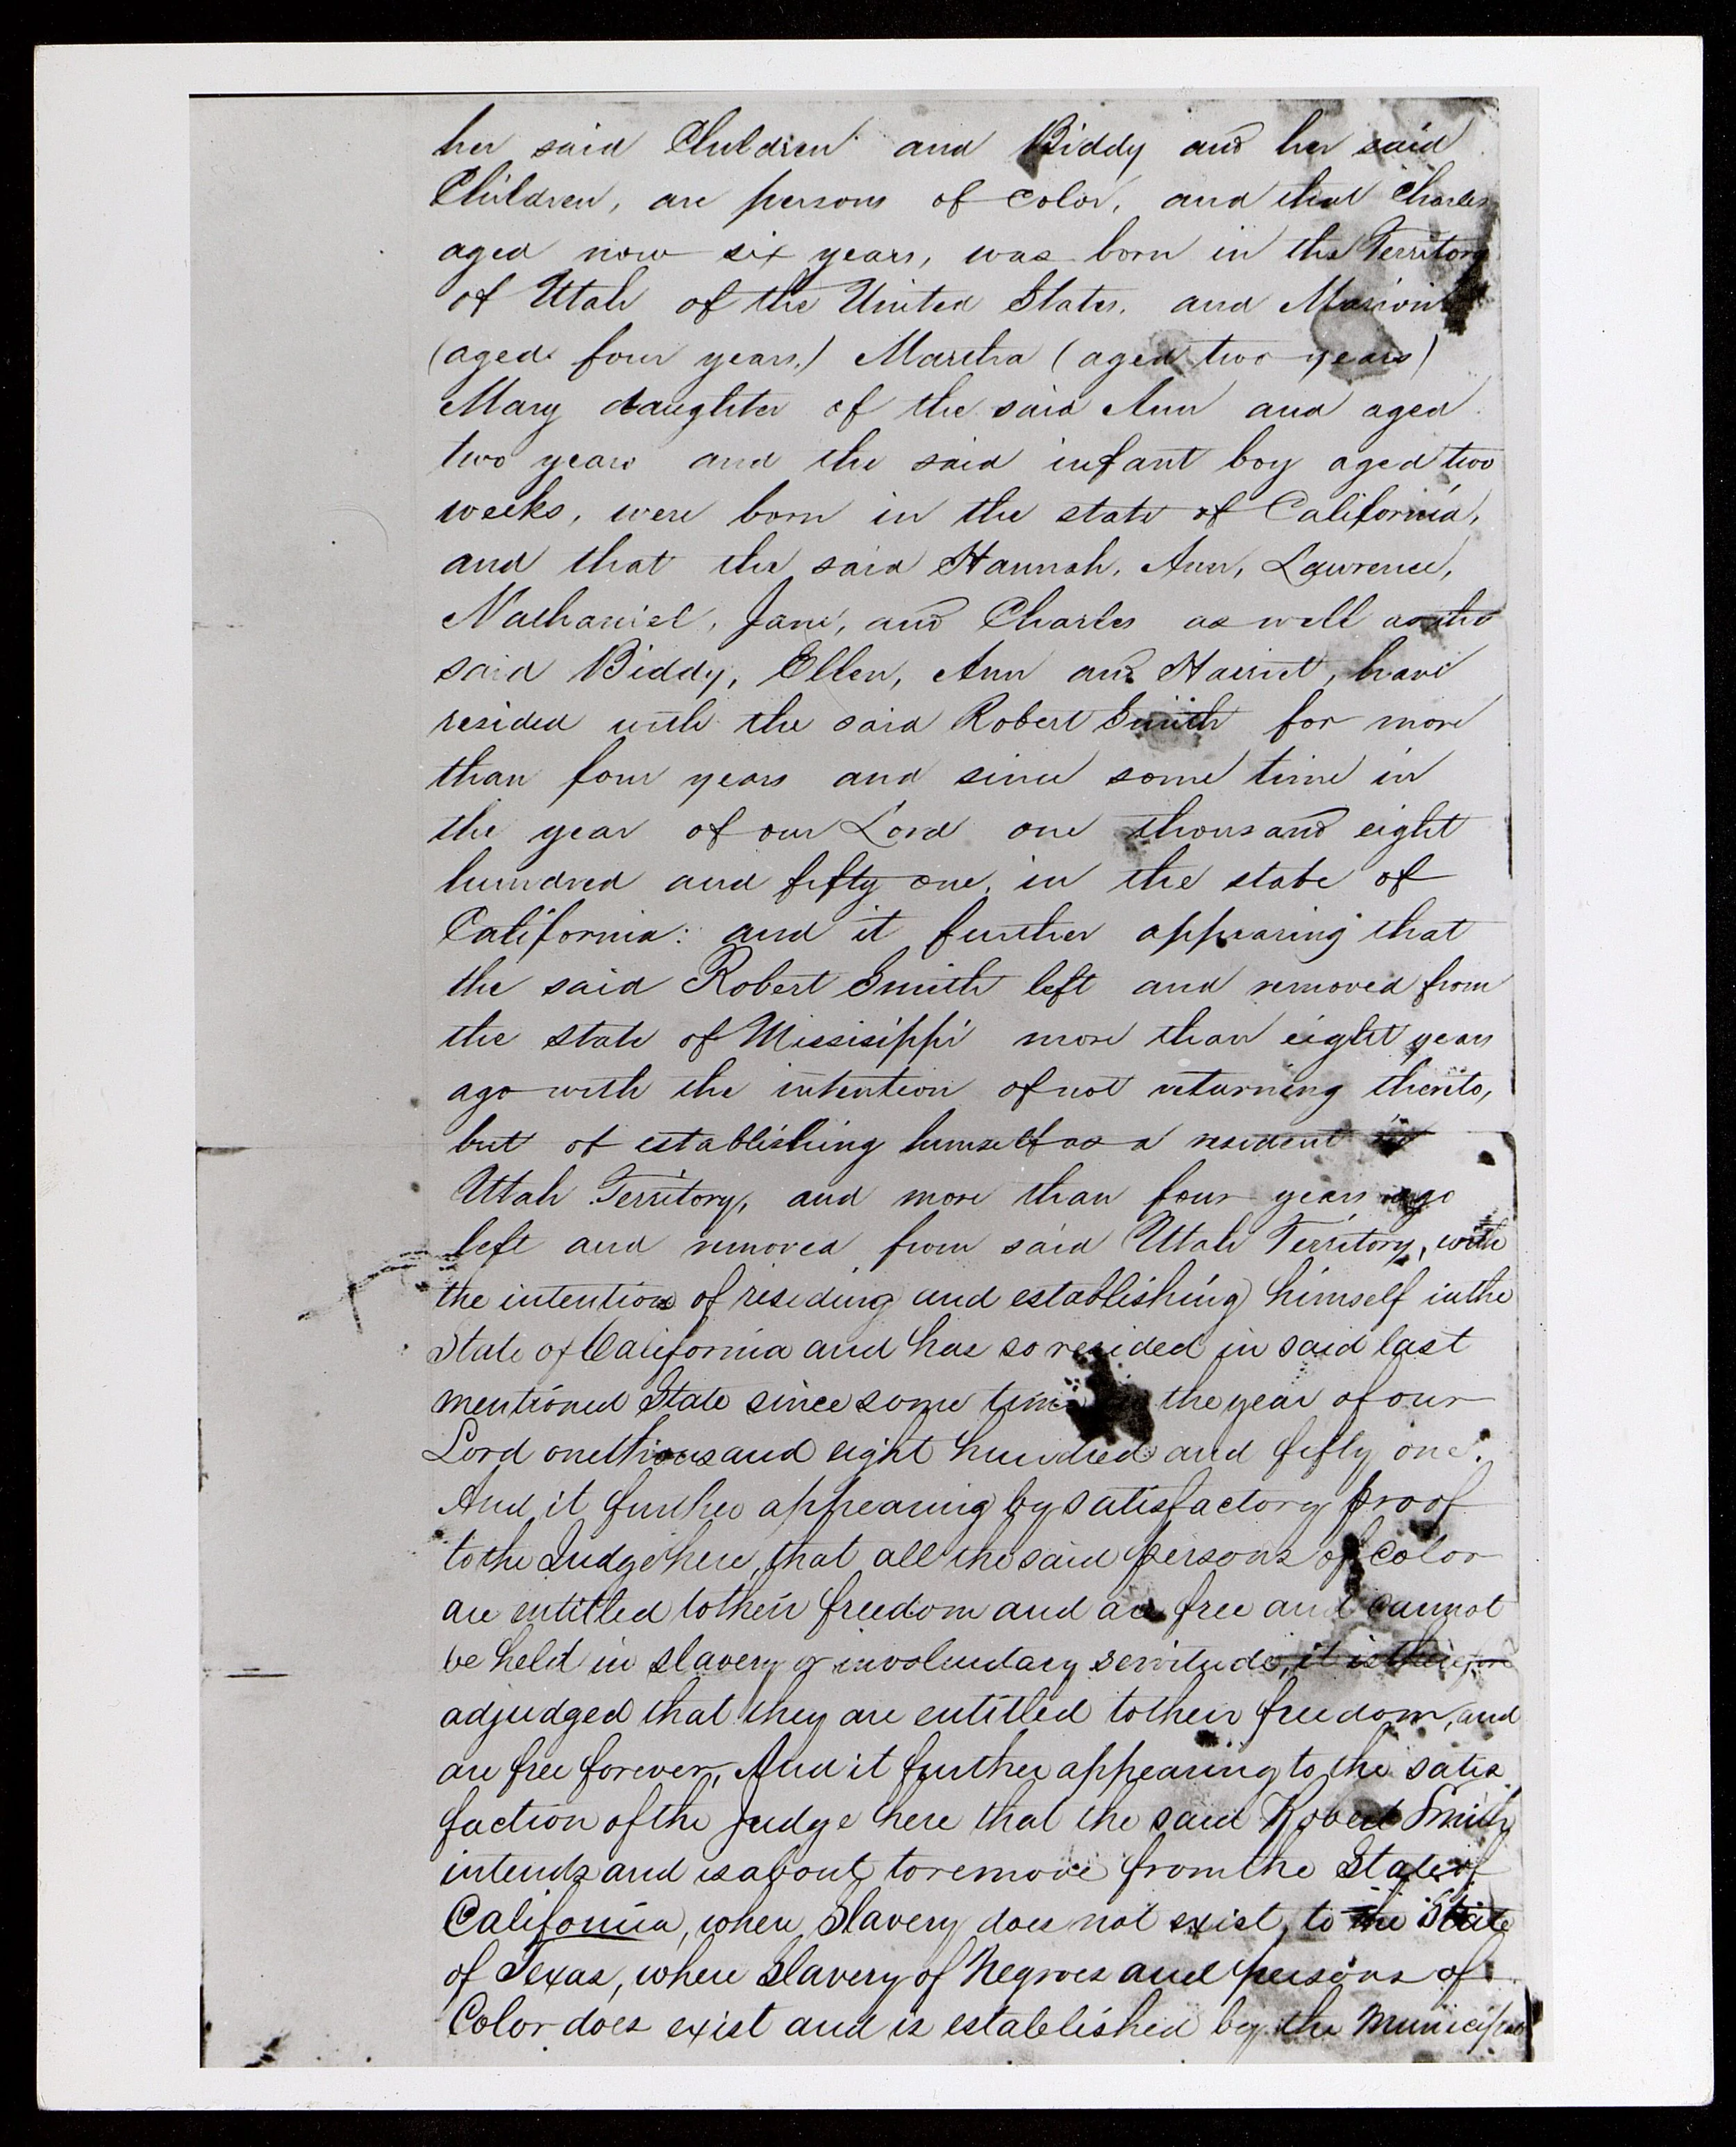 her said Children and Biddy and her said
Children, are persons of Color, and that Charles
aged now six years, was born in the Territory
of Utah of the United States. and Marion
(aged four years,) Martha (aged two years)
Mary daughter of the said Ann and aged
two years and the said infant boy aged two
weeks, were born in the state of California,
and that the said Hannah, Ann, Lawrence,
Nathaniel, Jane, and Charles as well as the
said Biddy, Ellen, Ann and Harriet, have
resided with the said Robert Smith for more
than four years and since some time in
the year of our Lord one thousand eight
hundred and fifty one, in the state of
California: and it further appearing that
the said Robert Smith left and removed from
the state of Missisippi more than eight years
ago with the intention of not returning thereto,
but of establishing himself as a resident in
Utah Territory, and more than four years ago
left and removed from said Utah Territory, with
the intention of residing and establishing himself in the
State of California and has so resided in said last
mentioned State since some time the year of our
Lord one thousand eight hundred and fifty one.
And it further appearing by satisfactory proof
to the Judge here, that all the said persons of Color
are entitled to their freedom and are free and cannot
be held in slavery or involuntary servitude, it is therefore
adjudged that they are entitled to their freedom, and
are free forever, And it further appearing to the satis
faction of the Judge here that the said Robert Smith
intends and is about to remove from the State of
California, where Slavery does not exist, to the State
of Texas, where Slavery of Negroes and persons of
Color does exist and is established by the Municipal